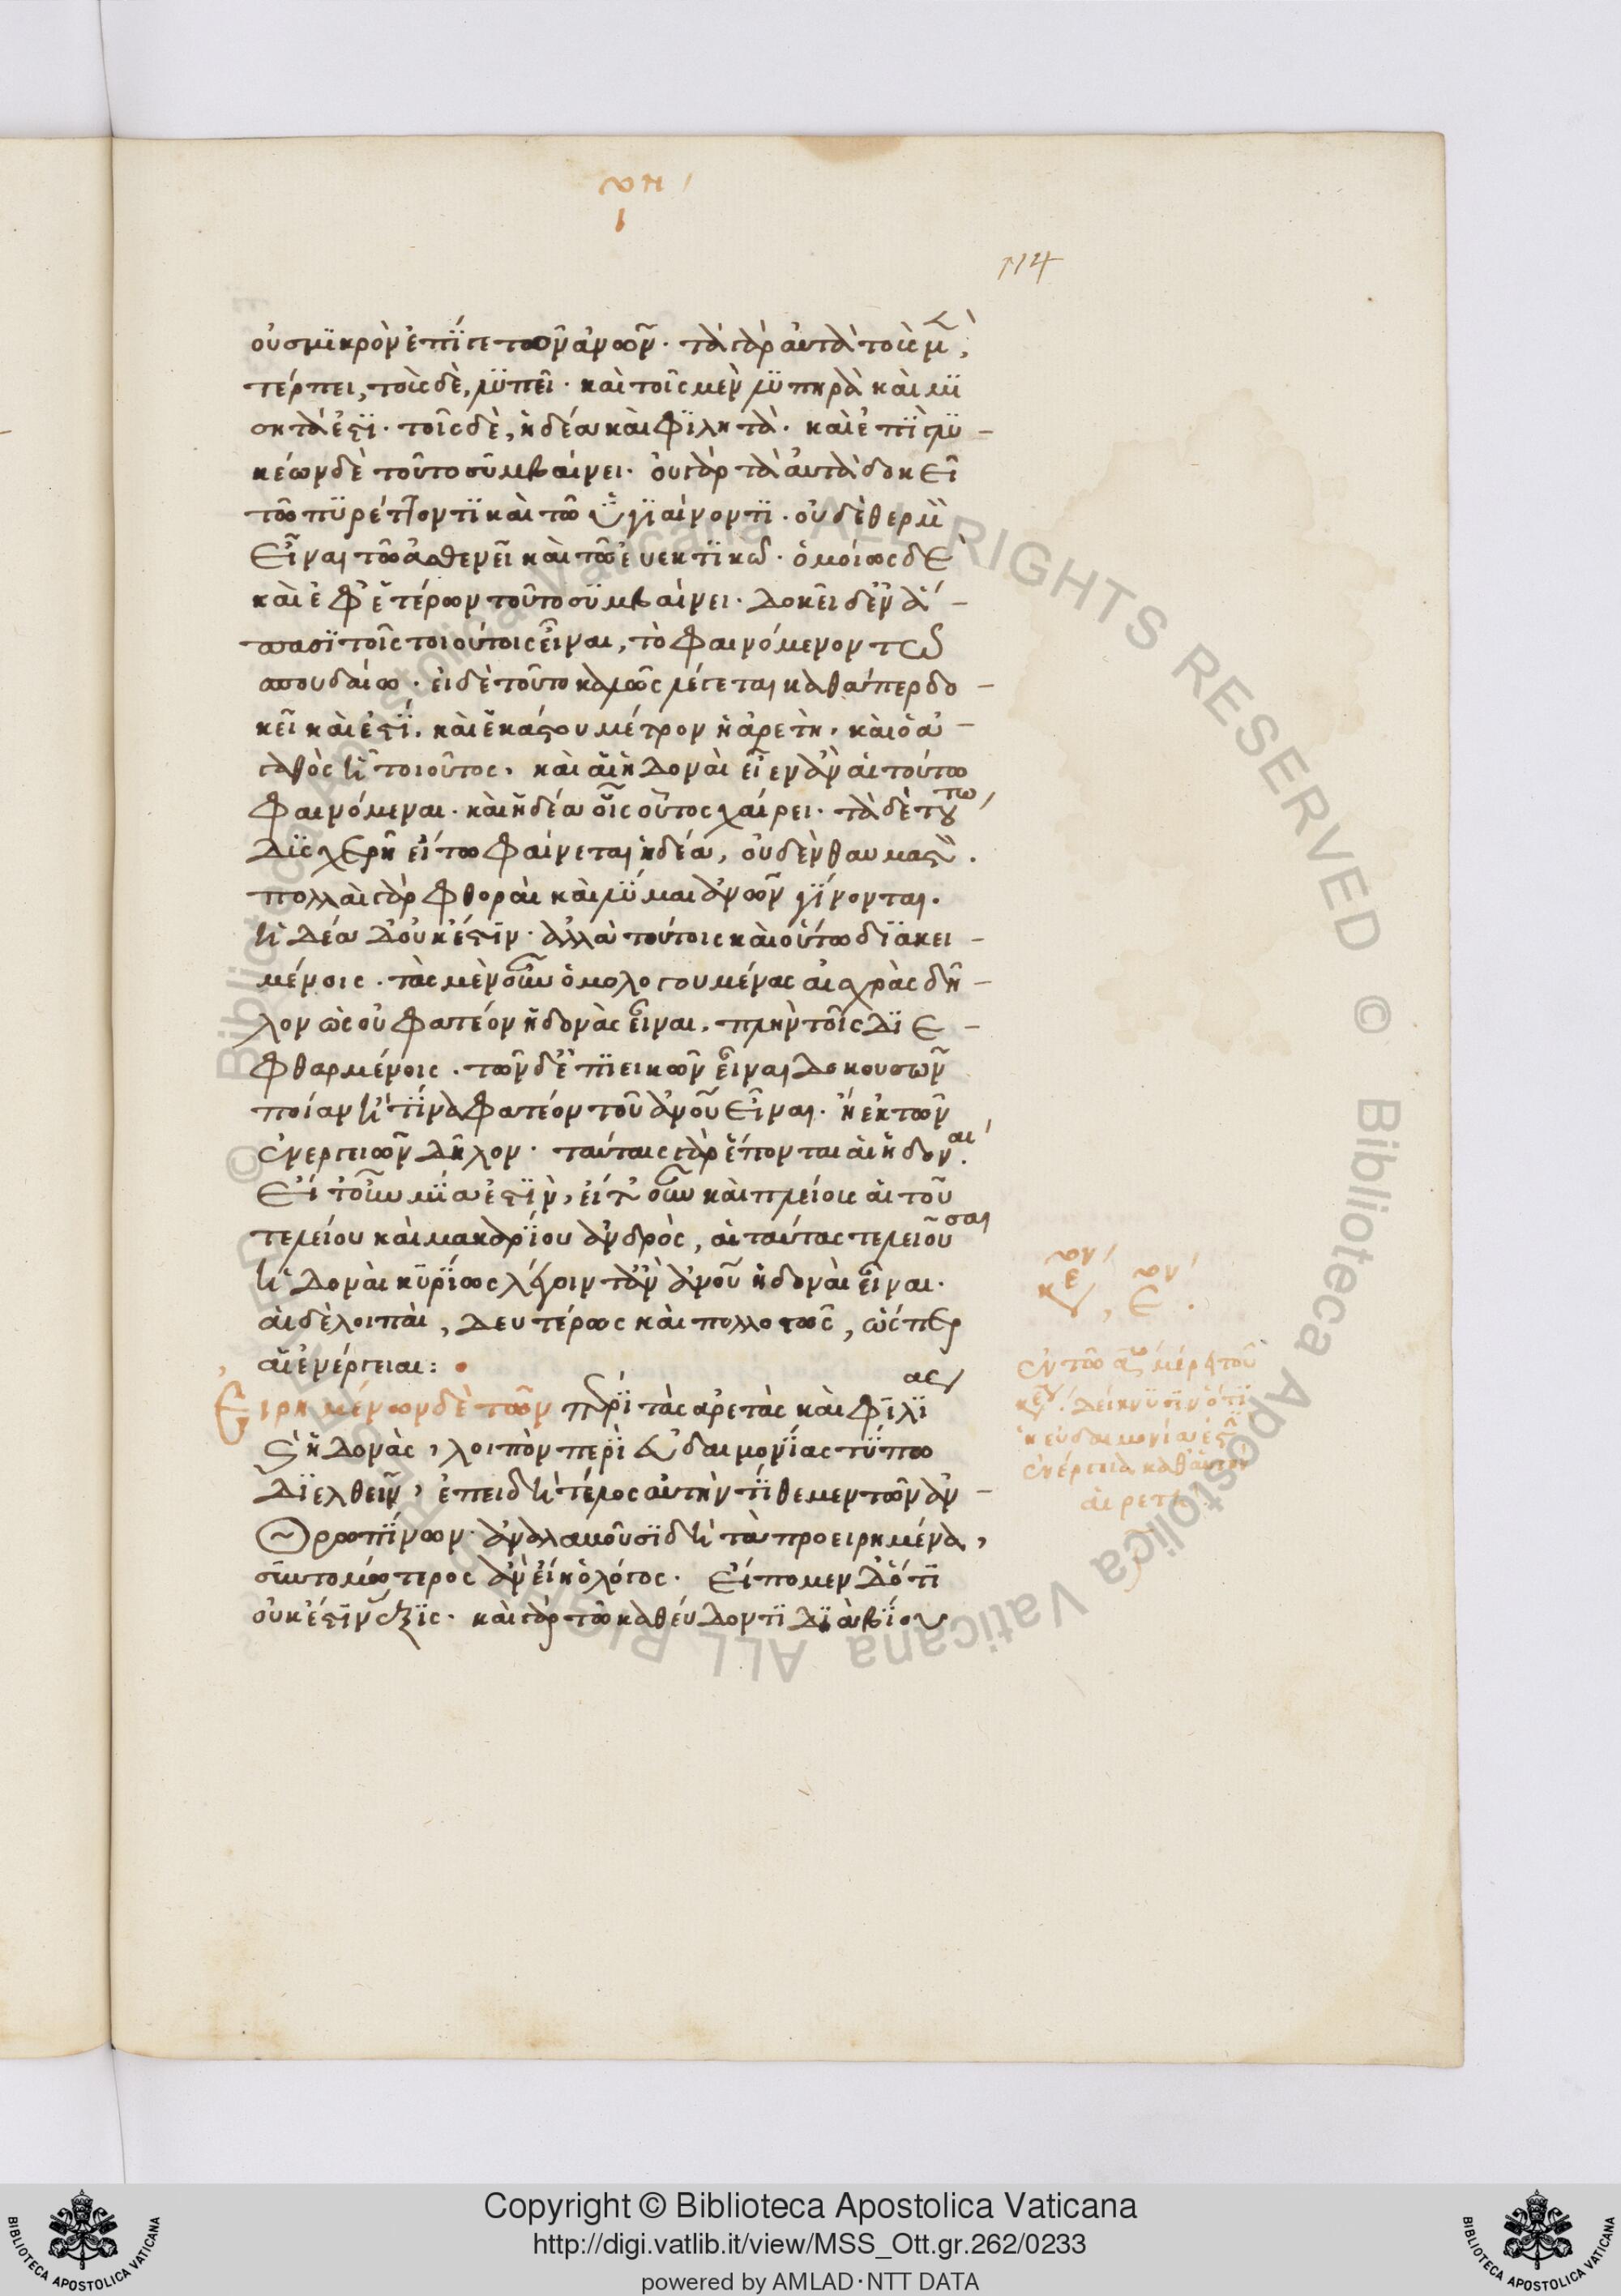 114
οὐ σμϊκρὸν ἐπΐ γε τῶν ἀνων̃· τὰ γὰρ αὐτὰ τοὺς μ̀
τέρπει, τοὺς δὲ, λϋπεῖ· καὶ τοῖς μὲν λϋπηρὰ καὶ μϊ
σητὰ ἐστϊ· τοῖς δὲ, ἡδέα καὶ φϊλητά· καὶ ἐπῒ γλυ -
κέων δὲ τοῦτο συμβαίνει· οὐ γὰρ τὰ αὐτὰ δοκεῖ
τῶ πϋρέττοντϊ καὶ τῶ ϋγϊαίνοντϊ· οὐδὲ θερμὸν
εἶναι τῶ ἀσθενεῖ καὶ τῶ ἐυεκτϊκῶ· ὁμοίως δὲ
καὶ ἐφ' ἑτέρων τοῦτο συμβαίνει· δοκεῖ δ' ἐν ἅ -
πασϊ τοῖς τοιούτοις εἶναι, τὸ φαινόμενον τῶ
σπουδαίω· εἰ δὲ τοῦτο καλῶς λέγεται καθάπερ δο -
κεῖ καὶ ἐστΐ. καὶ ἑκάστου μέτρον ἡ ἀρετὴ, καὶ ὁ ἀ -
γαθὸς ᾗ τοιοῦτος, καὶ αἱ ἡδοναὶ εἶεν ἂν αἱ τούτω
φαινόμεναι· καὶ ἡδέα οἷς οὗτος χαίρει· τὰ δὲ τούτω
δϊςχερῆ εἴ τω φαίνεται ἡδέα, οὐδὲν θαυμαστόν.
πολλαὶ γὰρ φθοραὶ καὶ λῦμαι ἀνων̃ γΐνονται.
ἡδέα δ' οὐκ ἔστϊν· ἀλλὰ τούτοις καὶ οὕτω δϊακει -
μένοις. τὰς μὲν οὖν ὁμολογουμένας αἰσχρὰς δῆ -
λον ὡς οὐ φατέον ἡδονὰς εἶναι, πλὴν τοῖς δϊε -
φθαρμένοις. τῶν δ' ἐπϊεικῶν εἶναι δοκουσῶν
ποίαν ἢ τΐνα φατέον τοῦ ἀνοῦ εἶναι. ἢ ἐκ τῶν
ἐνεργειῶν δῆλον· ταύταις γὰρ ἕπονται αἱ ἡδοναί.
εἴτ' οὖν μΐα ἐστΐν, εἴτ' οὖν καὶ πλείους αἱ τοῦ
τελείου καὶ μακαρΐου ἀνδρὸς, αἱ ταύτας τελειοῦσαι
ἡδοναὶ κϋρΐως λέγοιντ' ἂν ἀνοῦ ἡδοναὶ εἶναι·
αἱ δὲ λοιπαὶ, δευτέρως καὶ πολλοστῶς, ὥςπερ
αἱ ἐνέργειαι:
Εἰρημένων δὲ τῶν περὶ τὰς ἀρετὰς καὶ φϊλΐας
ϗ ἡδονὰς, λοιπὸν περῒ εὐδαιμονΐας τΰπω
δϊελθεῖν, ἐπειδὴ τέλος αὐτὴν τΐθεμεν τῶν ἀν -
θρωπΐνων· ἀναλαμβοῦσϊ δὴ τὰ προειρημένα,
συντομώτερος ἂν εἴη ὁ λόγος. Εἴπομεν δ' ὅτϊ
οὐκ ἔστϊν ἕξϊς· καὶ γὰρ τῶ καθεύδοντϊ δϊὰ βΐου
ἐν τῶ μέρει τοῦ
δείκνϋσϊν ὅτϊ
ἡ εὐδαιμονία ἐστὶν
ἐνέργεια κατ'
ἀρετήν
© Biblioteca Apostolica Vaticana ALL RIGHTS RESERVED © Biblioteca Apostolica Vaticana ALL RIGHTS RESERVED
Copyright © Biblioteca Apostolica Vaticana
http://digi.vatlib.it/view/MSS_Ott.gr.262/0233
powered by AMLAD·NTT DATA
BIBLIOTECA APOSTOLICA VATICANA
BIBLIOTECA APOSTOLICA VATICANA